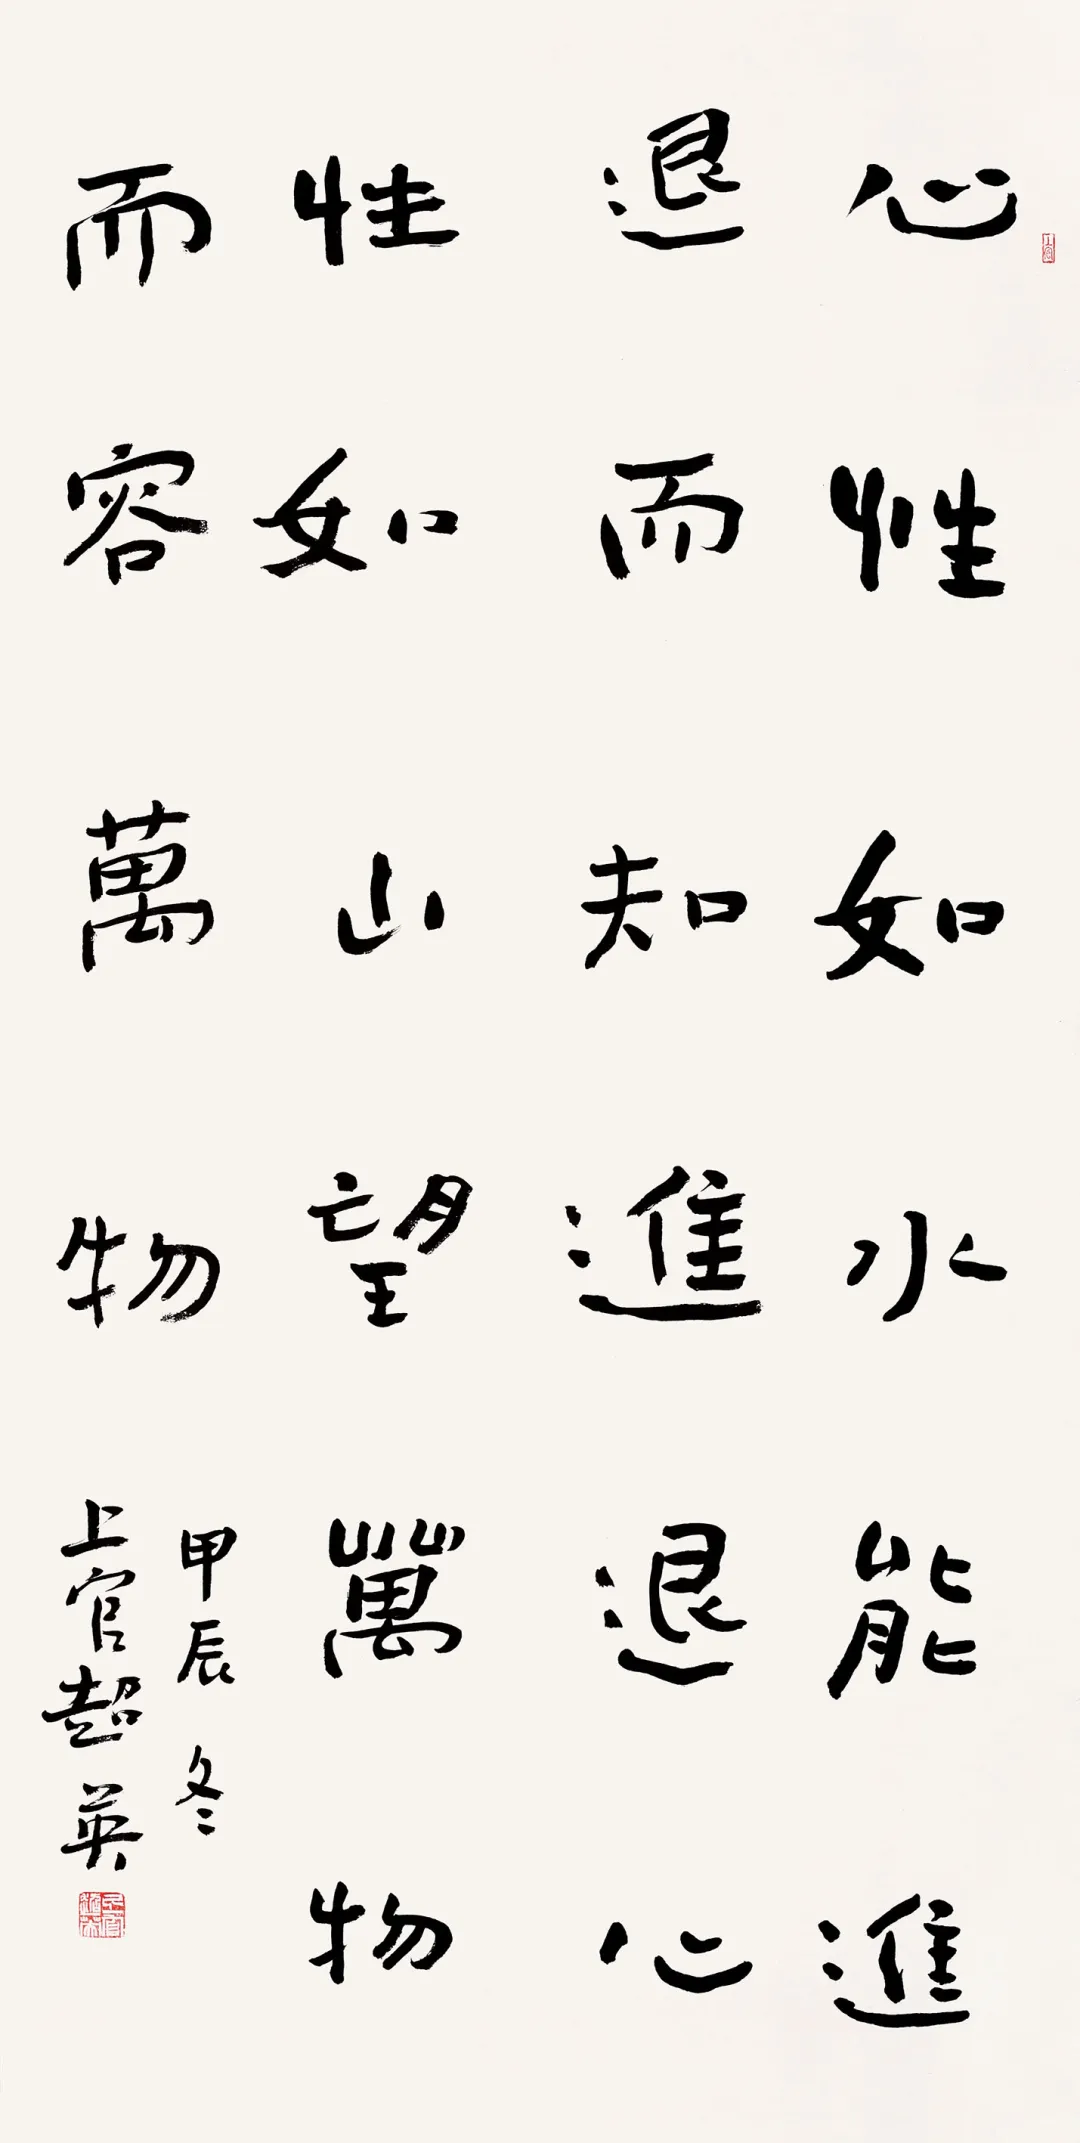 心性如水能進
退而知進退心
性如山望萬物
而容萬物
甲辰冬
上官超英